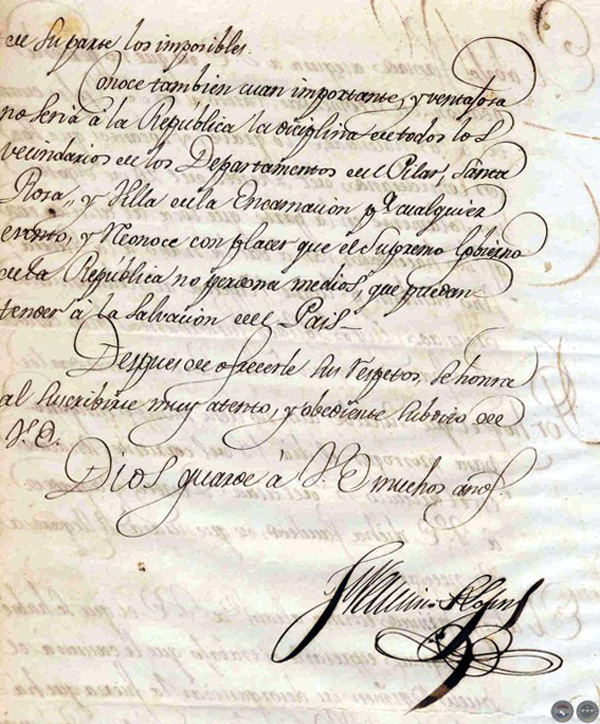 de su parte los imposibles.
Conoce tambien cuan importante, y ventajosa
no seria à la República la diciplina de todos los
vecindarios de los Departamentos del Pilar, Santa
Rosa, y Villa de la Encarnacion pª cualquier
evento, y Reconoce con placer que el Supremo Gobierno
de la República no perdona medios, que puedan
tender à la Salvacion del Pais_
Despues de ofrecerle sus respetos, se honra
al suscribirse muy atento, y obediente subdito de
V. E.
Dios guarde à V. E muchos años.